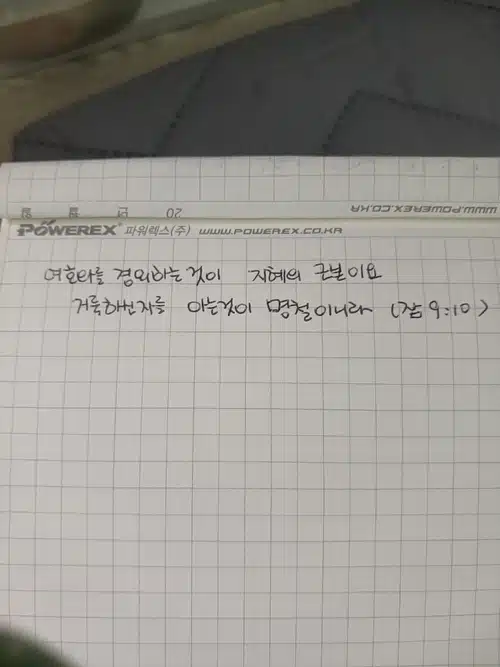 20 년 월 일
WWW.POWEREX.CO.KR
POWEREX® 파워렉스(주) WWW.POWEREX.CO.KR
여호와를 경외하는것이 지혜의 근본이요
거룩하신자를 아는것이 명철이니라 (잠 9:10)